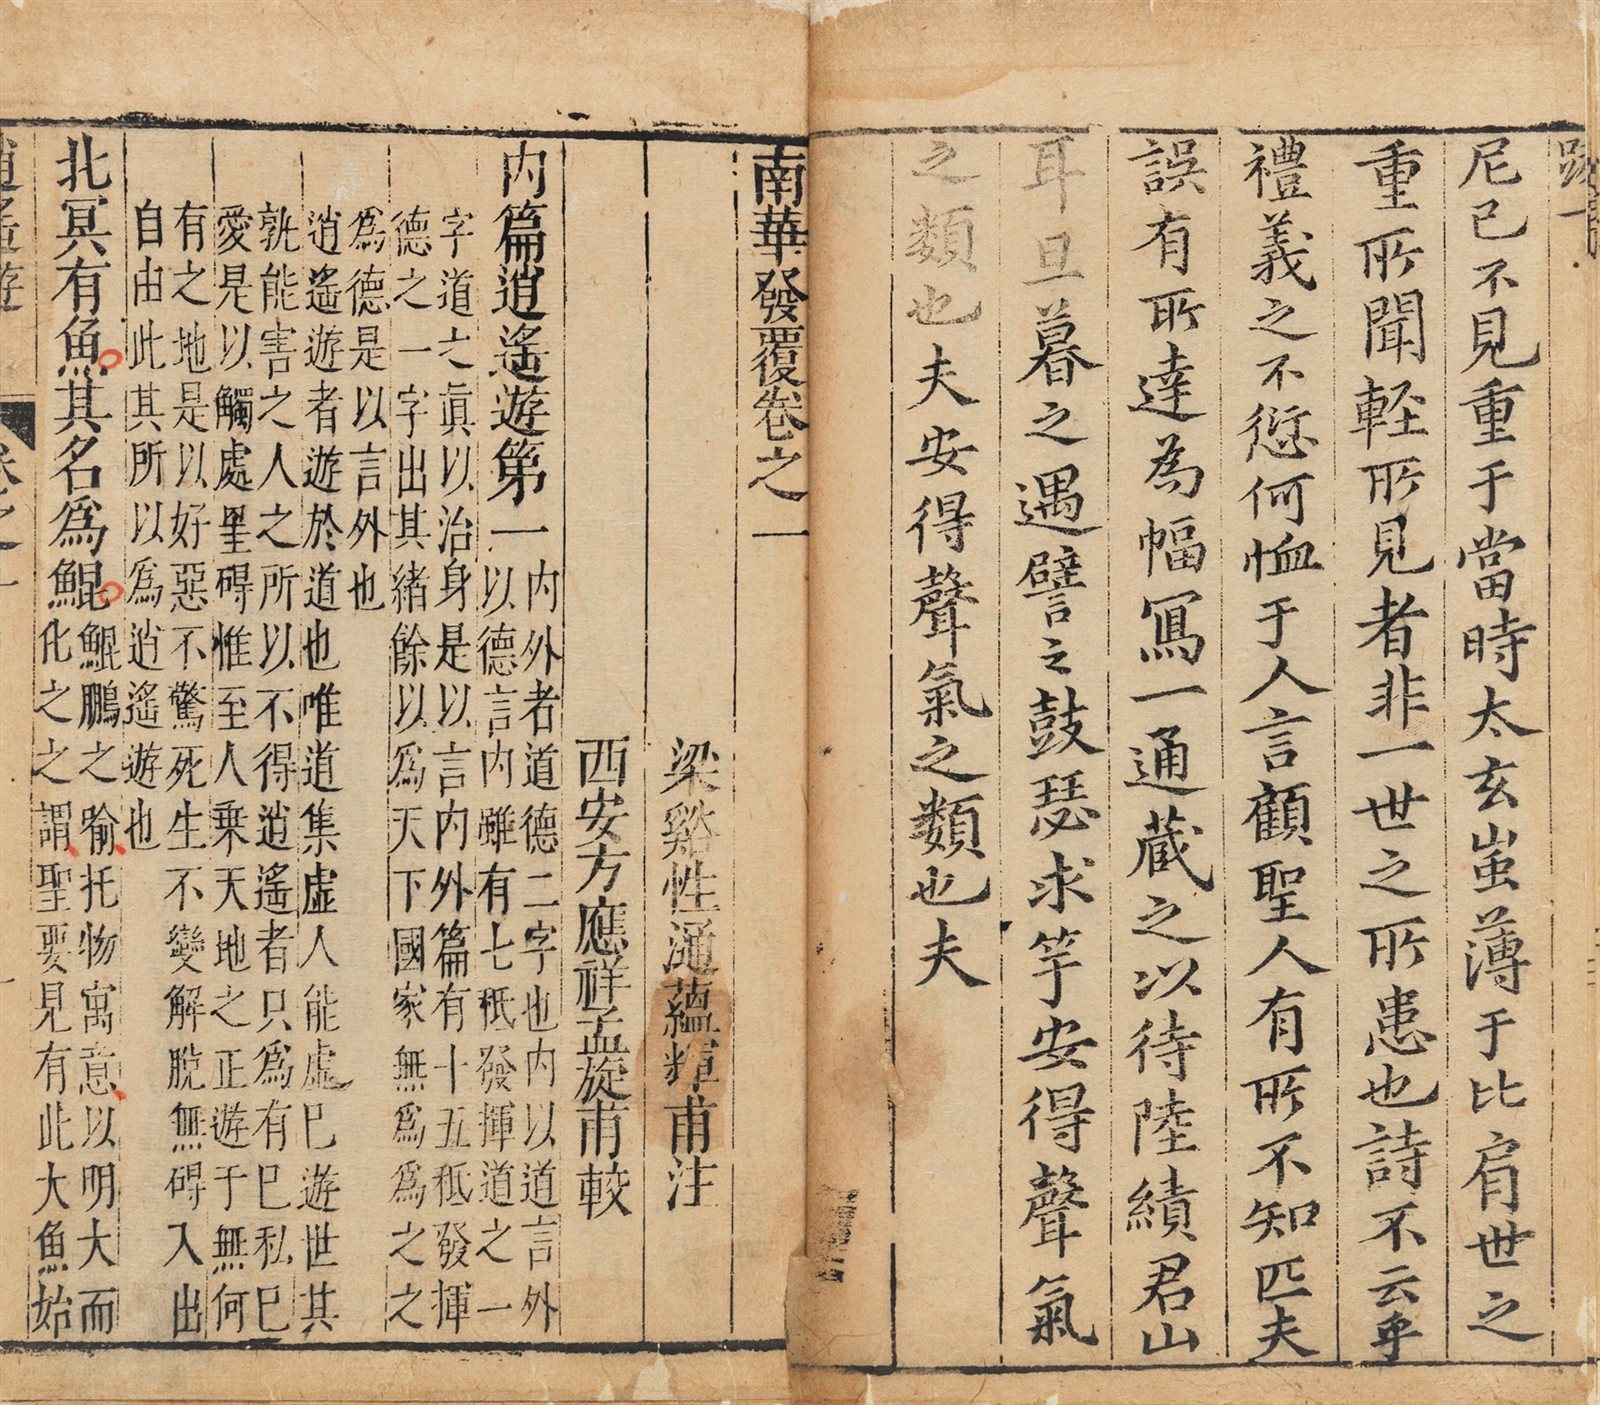 尼已不見重于當時太玄蚩薄于比肩世之
重所聞輕所見者非一世之所患也詩不云乎
禮義之不愆何恤于人言顧聖人有所不知匹夫
誤有所達為幅寫一通蔵之以待陸績君山
耳旦暮之遇譬之鼓瑟求竽安得聲氣
之類也夫安得聲氣之類也夫
南華發覆卷之一
梁谿性蘊輝甫注
西安方應祥孟旋甫較
内篇逍遙遊第一
内外者道德二字也内以道言外
以德言内雖有七秪發揮道之一
字道之眞以治身是以言内外篇有十五秪發揮
德之一字出其緒餘以爲天下國家無爲爲之之
爲德是以言外也
逍遙遊者遊於道也唯道集虛人能虛巳遊世其
孰能害之人之所以不得逍遙者只爲有巳私巳
愛是以觸處罣碍惟至人乗天地之正遊于無何
有之地是以好惡不驚死生不變解脫無碍入出
自由此其所以爲逍遙遊也
北冥有魚其名爲鯤
鯤鵬之喻托物寓意以明大而
化之之謂聖要見有此大魚始
逍遙遊 卷之一